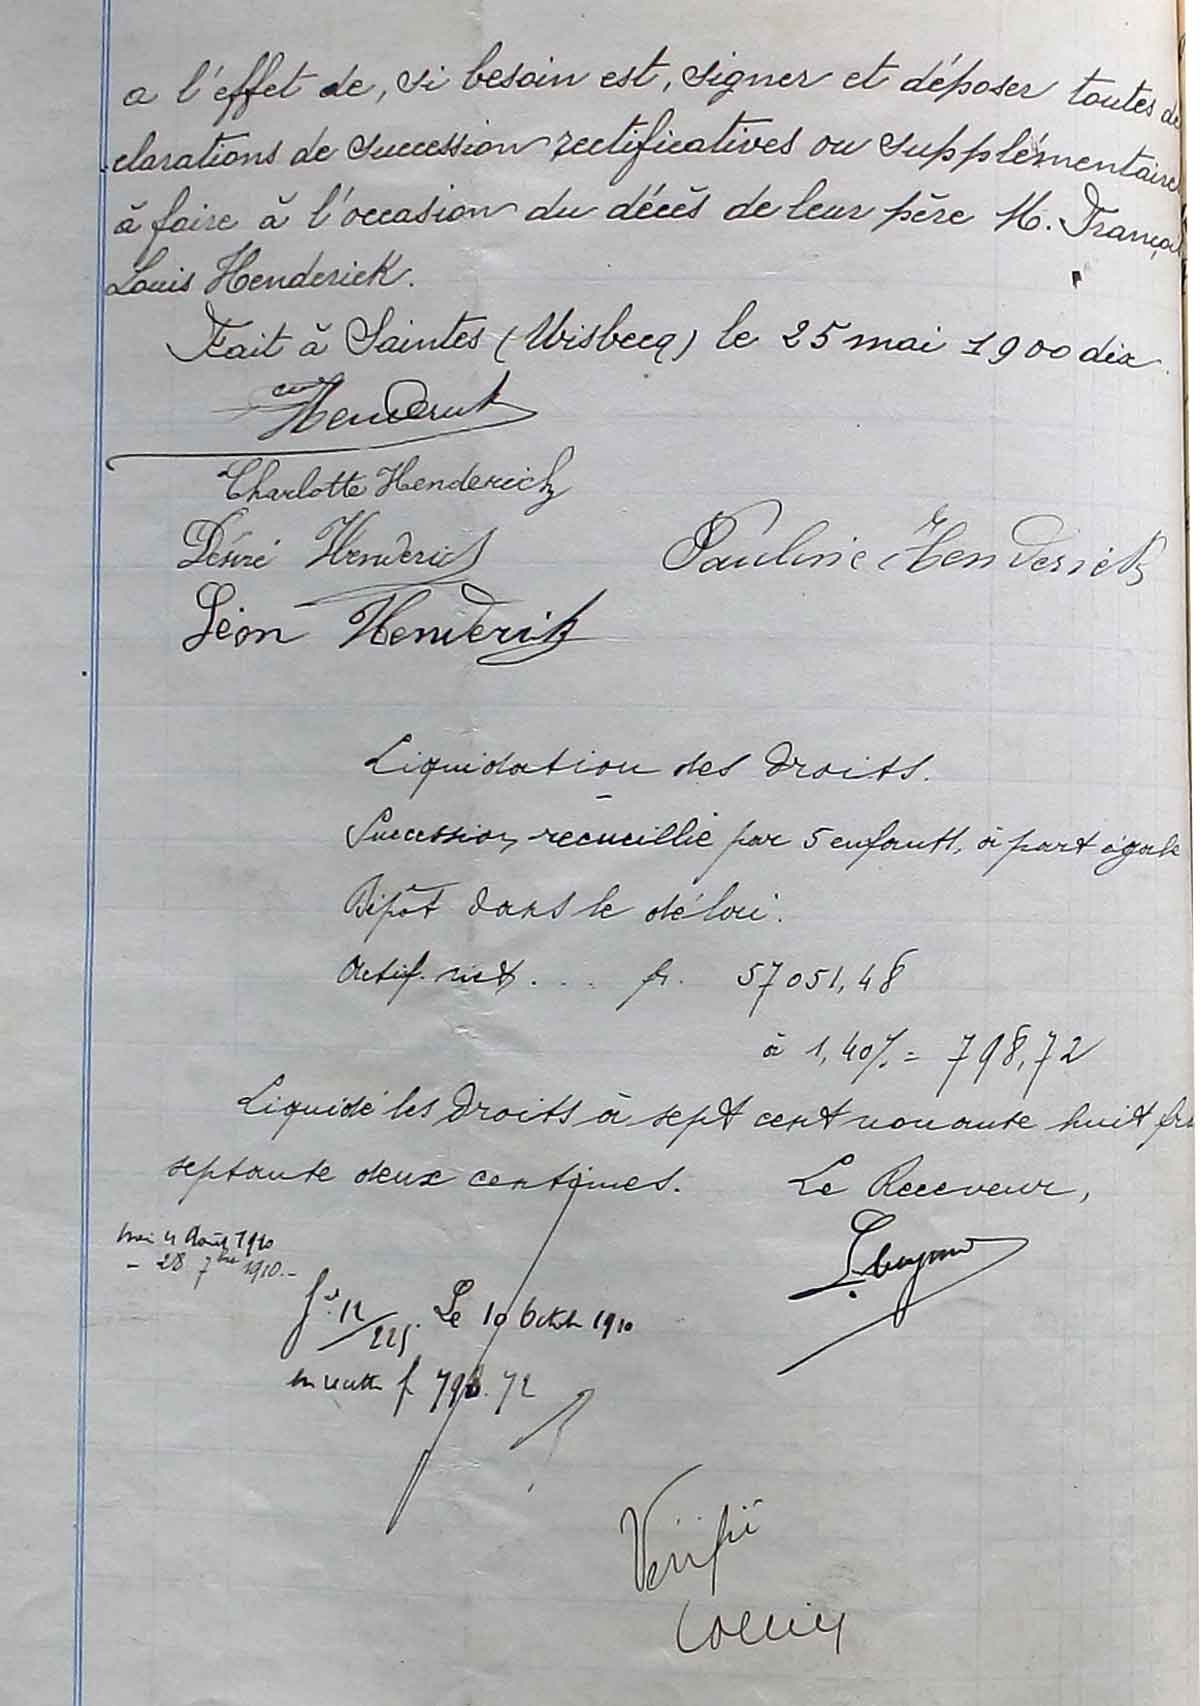 a l'effet de, si besoin est, signer et déposer toutes dé
clarations de succession rectificatives ou supplémentaires
à faire à l'occasion du décès de leur père M. François
Louis Henderick.
Fait à Saintes (Wisbecq) le 25 mai 1900 dix
Henderick
Charlotte Henderick
Désiré Henderick
Pauline Henderick
Léon Henderick
Liquidation des droits.
Succession recueillie par 5 enfants, à part égale
Dépôt dans le délai.
Actif net . . . fr. 57051,48
à 1,40% = 798,72
Liquidé les droits à sept cent nonante huit frs
septante deux centimes.
Le Receveur,
4 Août 1910
- 28 7bre 1910.-
12/225. Le 10 Octob 1910
f 798.72
Vérifié